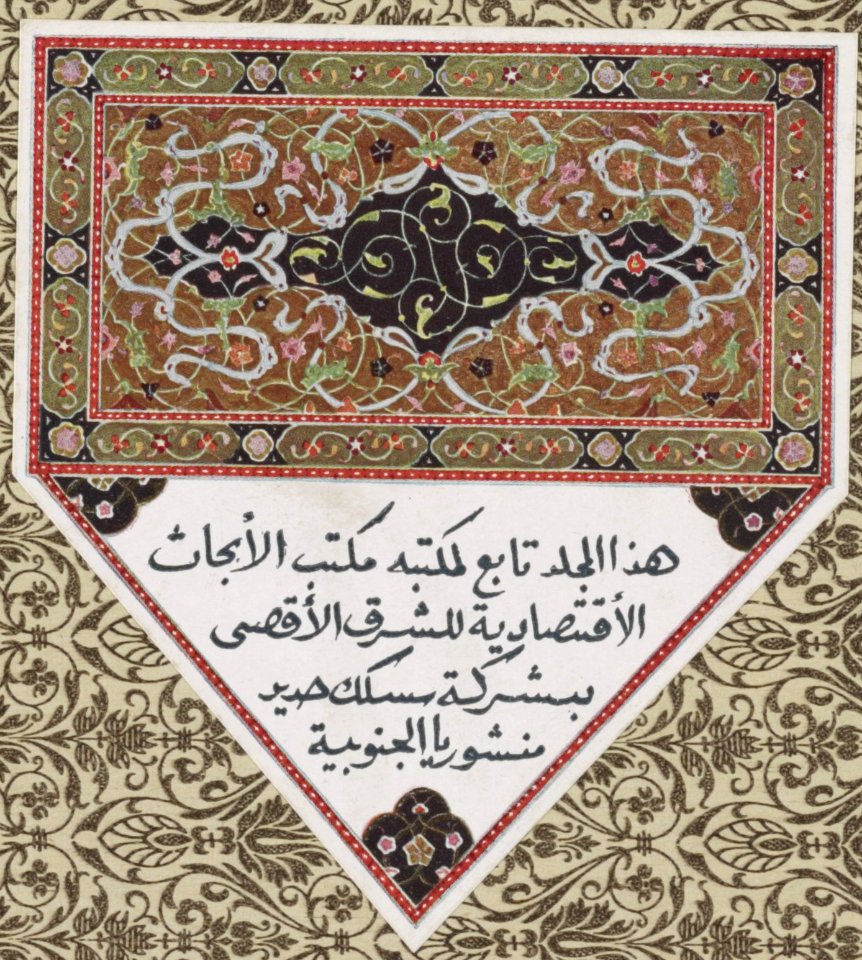 هذا المجلد تابع لمكتبه مكتب الأبحاث
الأقتصادية للشرق الأقصى
بشركة سسكك حديد
منشوريا الجنوبية